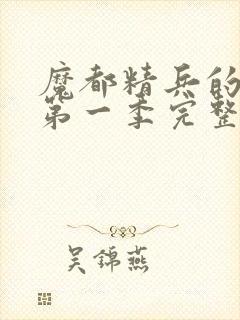 魔都精兵的
第一季完整
吴锦燕